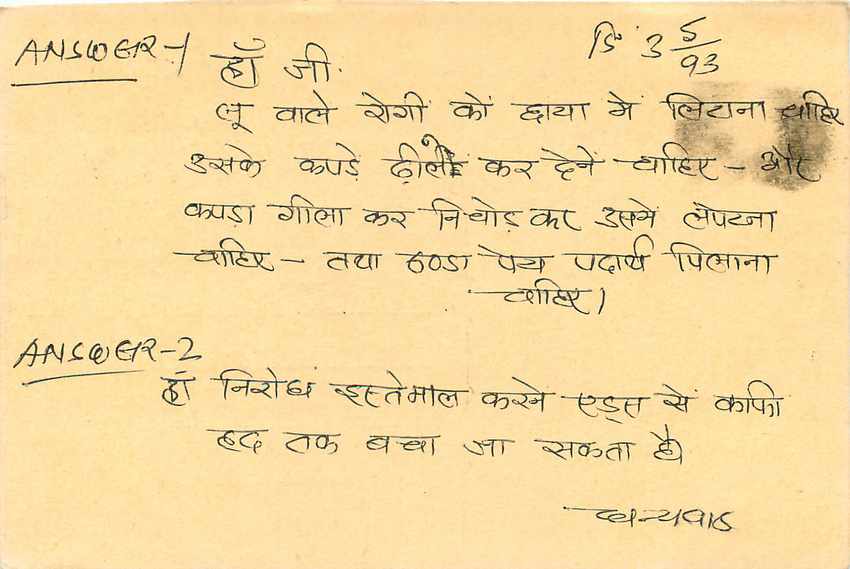 ANSWER-1
दि 3 5/93
हाँ जी.
लू वाले रोगी को छाया में लिटाना चाहिए
उसके कपड़े ढ़ीले कर देने चाहिए - और
कपड़ा गीला कर निचोड़ कर उसमे लपेटना
चाहिए - तथा ठण्डा पेय पदार्थ पिलाना
चाहिए।
ANSWER-2
हां निरोध इस्तेमाल करने एड्स से काफी
हद तक बचा जा सकता है।
धन्यवाद